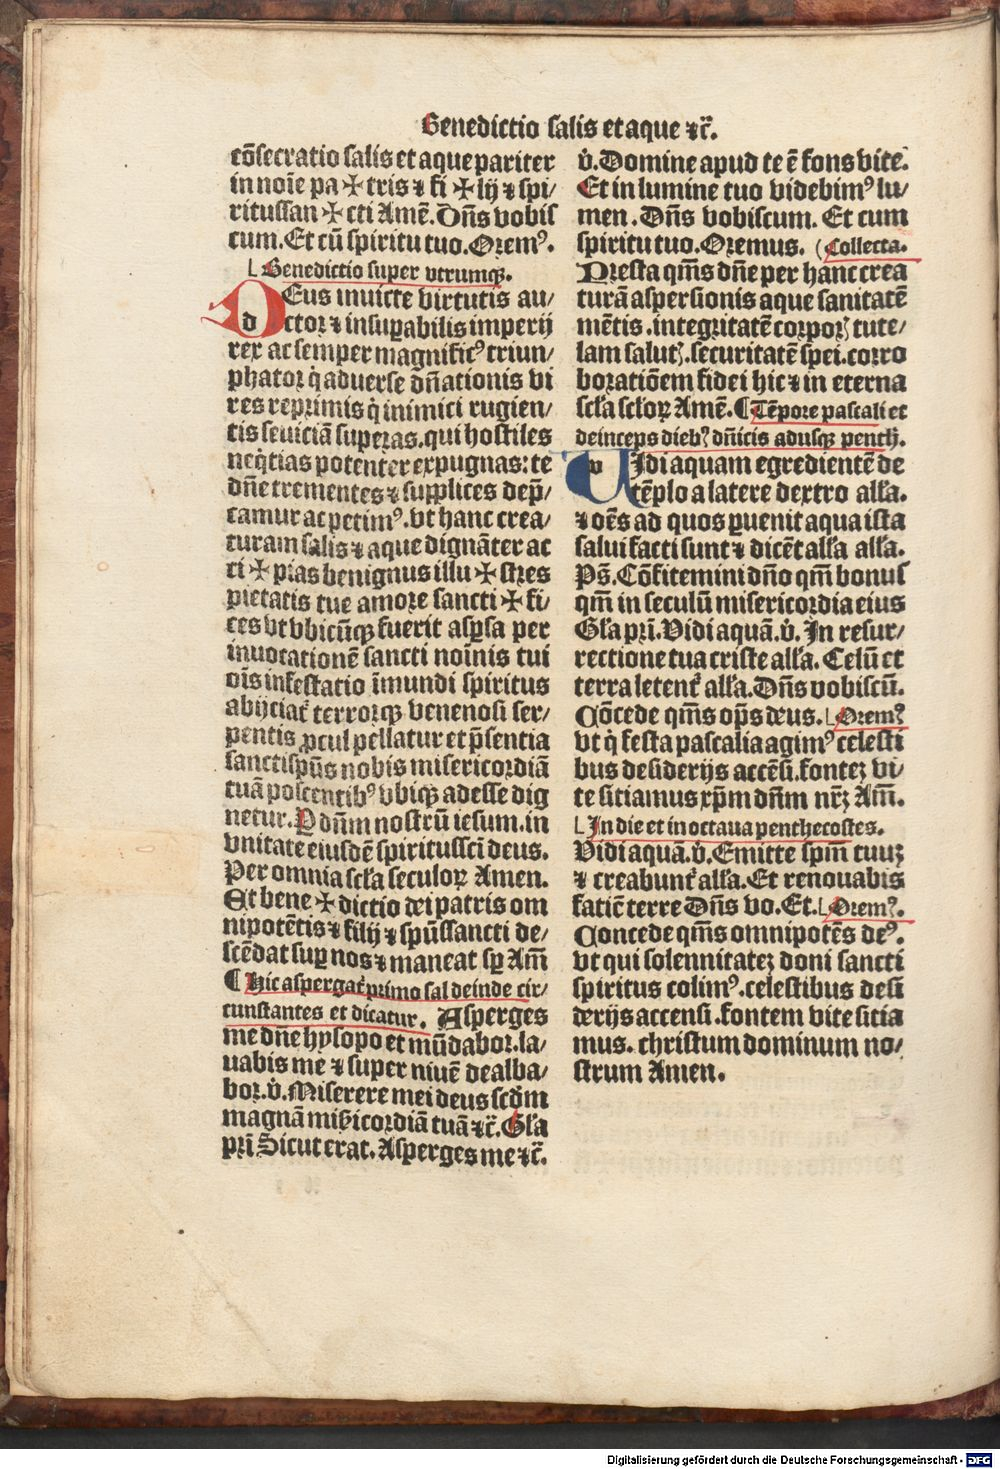 Benedictio salis et aque ⁊c̄.
cōsecratio salis et aque pariter
in noīe pa ✠ tris ⁊ fi ✠ lij ⁊ spi/
ritussan ✠ cti Amē. Dn̄s vobis
cum. Et cū spiritu tuo. Oremꝰ.
Benedictio super vtrumqꝫ.
DEus inuicte virtutis au/
ctor ⁊ insuꝑabilis imperij
rex ac semper magnificꝰ triun/
phator q̇ aduerse dn̄ationis vi
res reprimis q̇ inimici rugien/
tis seuiciā superas. qui hostiles
neq̇tias potenter expugnas: te
dn̄e trementes ⁊ supplices dep̄/
camur ac petimꝰ. vt hanc crea/
turam salis ⁊ aque dignāter ac
ci ✠ pias benignus illu ✠ stres
pietatis tue amore sancti ✠ fi/
ces vt vbicūqꝫ fuerit aspsa per
inuocationē sancti noīnis tui
oīs infestatio īmundi spiritus
abijciat᷑ terrorqꝫ venenosi ser/
pentis ꝓcul pellatur et p̄sentia
sanctisp̄us nobis misericordiā
tuā poscentibꝰ vbiqꝫ adesse dig
netur. P dn̄m nostrū iesum. in
vnitate eiusdē spiritussc̄i deus.
Per omnia scl̄a seculoꝝ Amen.
Et bene ✠ dictio dei patris om
nipotētis ⁊ filij ⁊ sp̄ussancti de/
scēdat suꝑ nos ⁊ maneat sp̱ Am̄
¶ Hic aspergat᷑ primo sal deinde cir/
cunstantes et dicatur. Asperges
me dn̄e hysopo et mūdabor. la/
uabis me ⁊ super niuē dealba/
bor. v̇. Miserere mei deus scd̄m
magnā mīẜicordiā tuā ⁊c̄. Gl̄a
pr̄i Sicut erat. Asperges me ⁊c̄.
v̇. Domine apud te ē fons vite.
Et in lumine tuo videbimꝰ lu/
men. Dn̄s vobiscum. Et cum
spiritu tuo. Oremus. (Collecta.
Presta qm̄s dn̄e per hanc crea
turā aspersionis aque sanitatē
mētis. integritatē corpoꝝ tute/
lam salutꝫ. securitatē spei. corro
boratiōem fidei hic ⁊ in eterna
scl̄a scl̄oꝝ Amē. ¶ Tēpore pascali et
deinceps diebꝰ dn̄icis adusqꝫ penth̄.
VIdi aquam egredientē de
tēplo a latere dextro all̄a.
⁊ oēs ad quos ꝑuenit aqua ista
salui facti sunt ⁊ dicēt all̄a all̄a.
Ps̄. Cōfitemini dn̄o qm̄ bonus
qm̄ in seculū misericordia eius
Gl̄a pr̄i. Vidi aquā. v̇. In resur/
rectione tua criste all̄a. Celū et
terra letent᷑ all̄a. Dn̄s vobiscū.
Cōcede qm̄s op̄s deus. Oremꝰ
vt q̇ festa pascalia agimꝰ celesti
bus desiderijs accēsi. fontez vi/
te sitiamus xp̄m dn̄m nr̄ꝫ Am̄.
In die et in octaua penthecostes.
Vidi aquā. v̇. Emitte spm̄ tuuꝫ
⁊ creabunt᷑ all̄a. Et renouabis
faciē terre Dn̄s vo. Et. Oremꝰ.
Concede qm̄s omnipotēs deꝰ.
vt qui solennitatez doni sancti
spiritus colimꝰ. celestibus desi
derijs accensi. fontem vite sitia
mus. christum dominum no/
strum Amen.
Digitalisierung gefördert durch die Deutsche Forschungsgemeinschaft - DFG